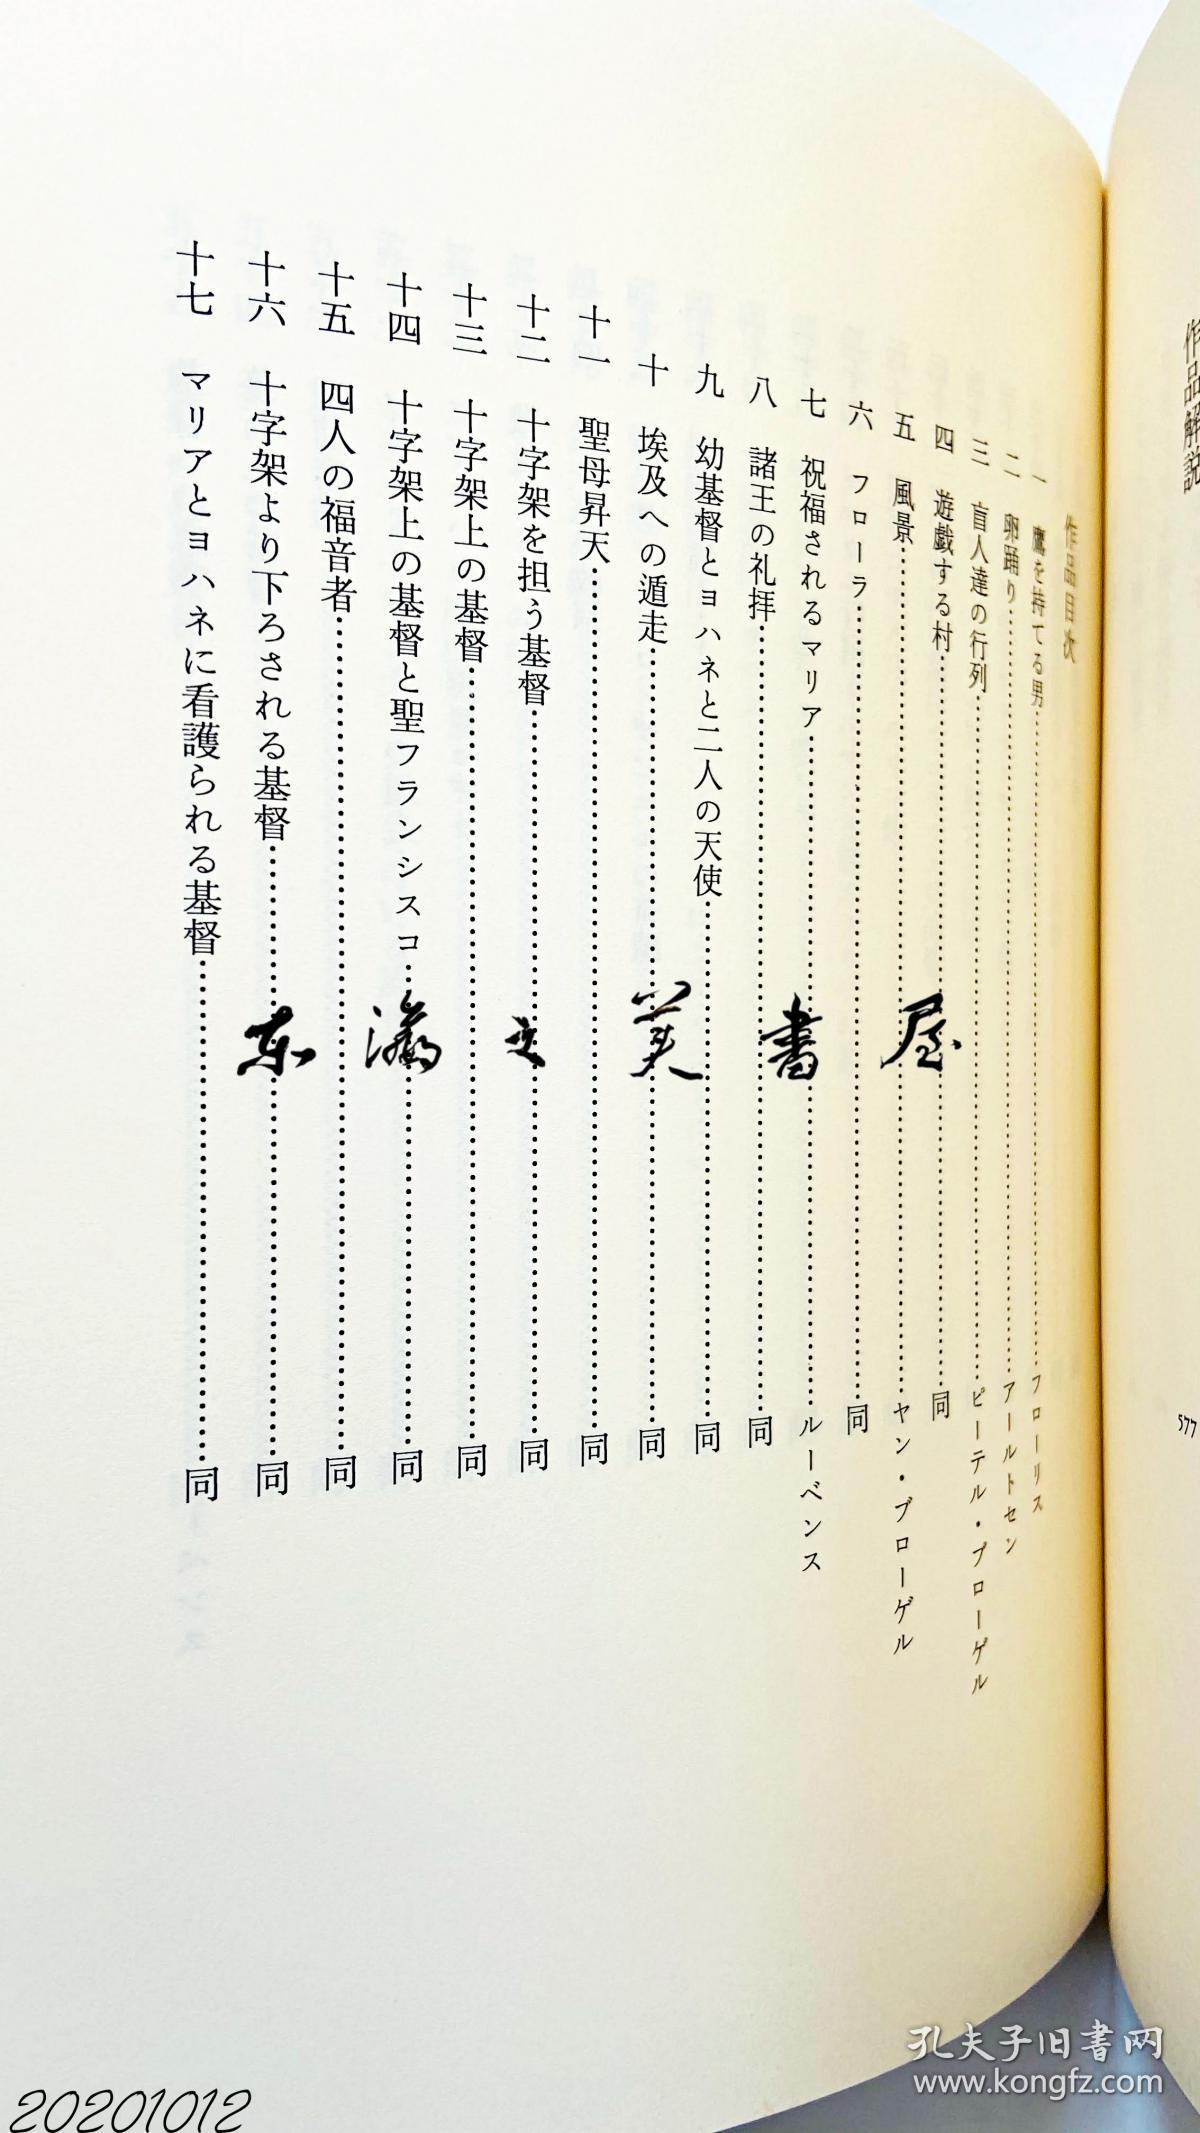 作品解説
577
作品目次
一 鷹を持てる男……フローリス
二 卵踊り……アールトセン
三 盲人達の行列……ピーテル・ブローゲル
四 遊戯する村……同
五 風景……ヤン・ブローゲル
六 フローラ……同
七 祝福されるマリア……ルーベンス
八 諸王の礼拝……同
九 幼基督とヨハネと二人の天使……同
十 埃及への遁走……同
十一 聖母昇天……同
十二 十字架を担う基督……同
十三 十字架上の基督……同
十四 十字架上の基督と聖フランシスコ……同
十五 四人の福音者……同
十六 十字架より下ろされる基督……同
十七 マリアとヨハネに看護られる基督……同
东瀛文美書屋
孔夫子旧書网
www.kongfz.com
20201012